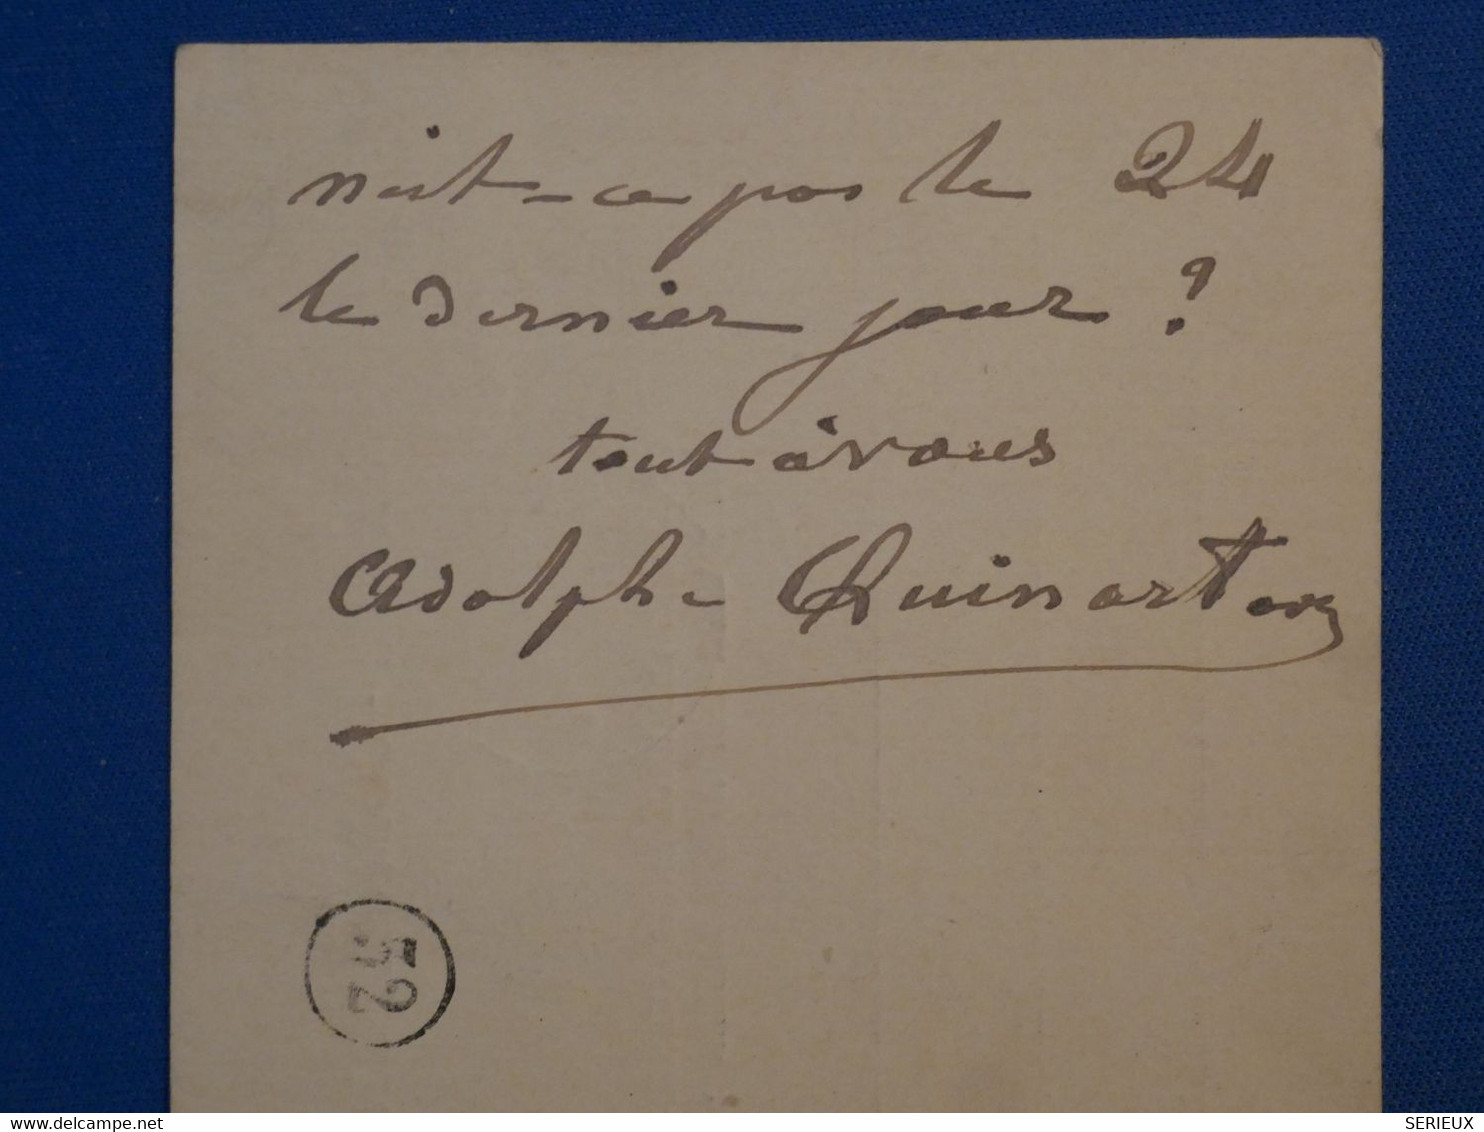 n'est-ce pas le 24
le dernier jour ?
tout à vous
Adolphe Quinart
52
www.delcampe.net
SERIEUX